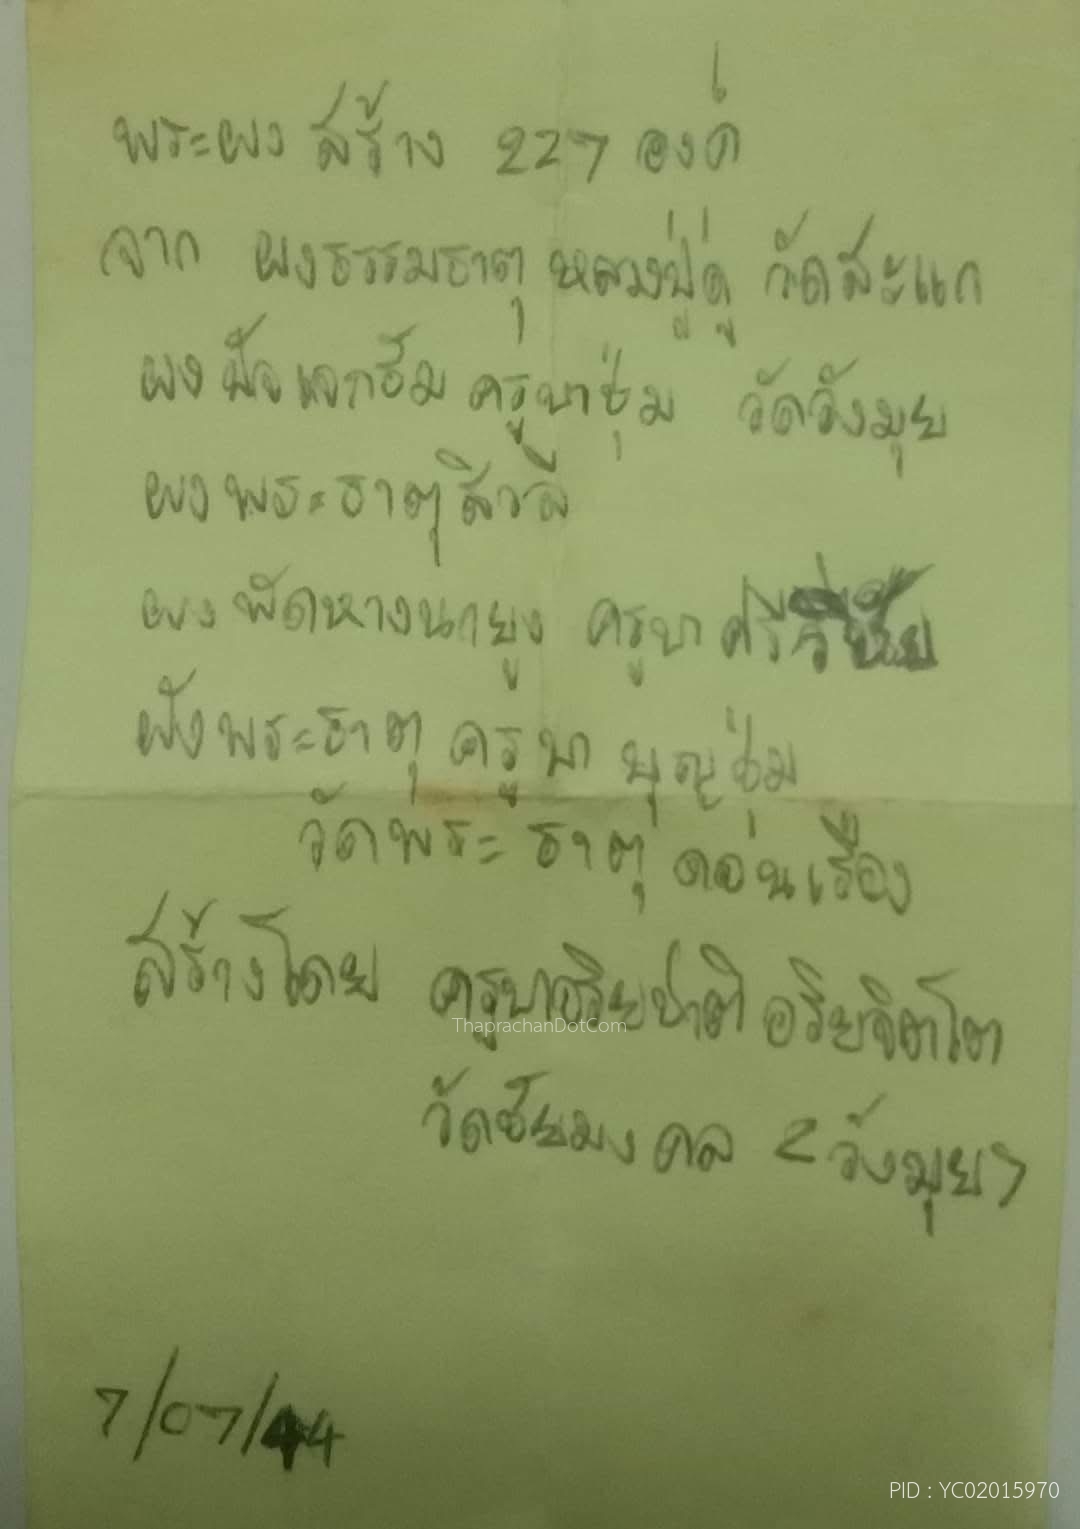 พระผง สร้าง 227 องค์
จาก ผงธรรมธาตุ หลวงปู่ดู่ วัดสะแก
ผง ครูบาชุ่ม วัดวังมุย
ผงพระธาตุสิวลี
ผงพัดหางนกยูง ครูบาศรีวิชัย
ผังพระธาตุ ครูบา บุญชุ่ม
วัดพระธาตุดอนเรือง
สร้างโดย ครูบาอริยชาติ อริยจิตโต
วัดชัยมงคล <วังมุย>
7/07/44
ThaprachanDotCom
PID : YC02015970